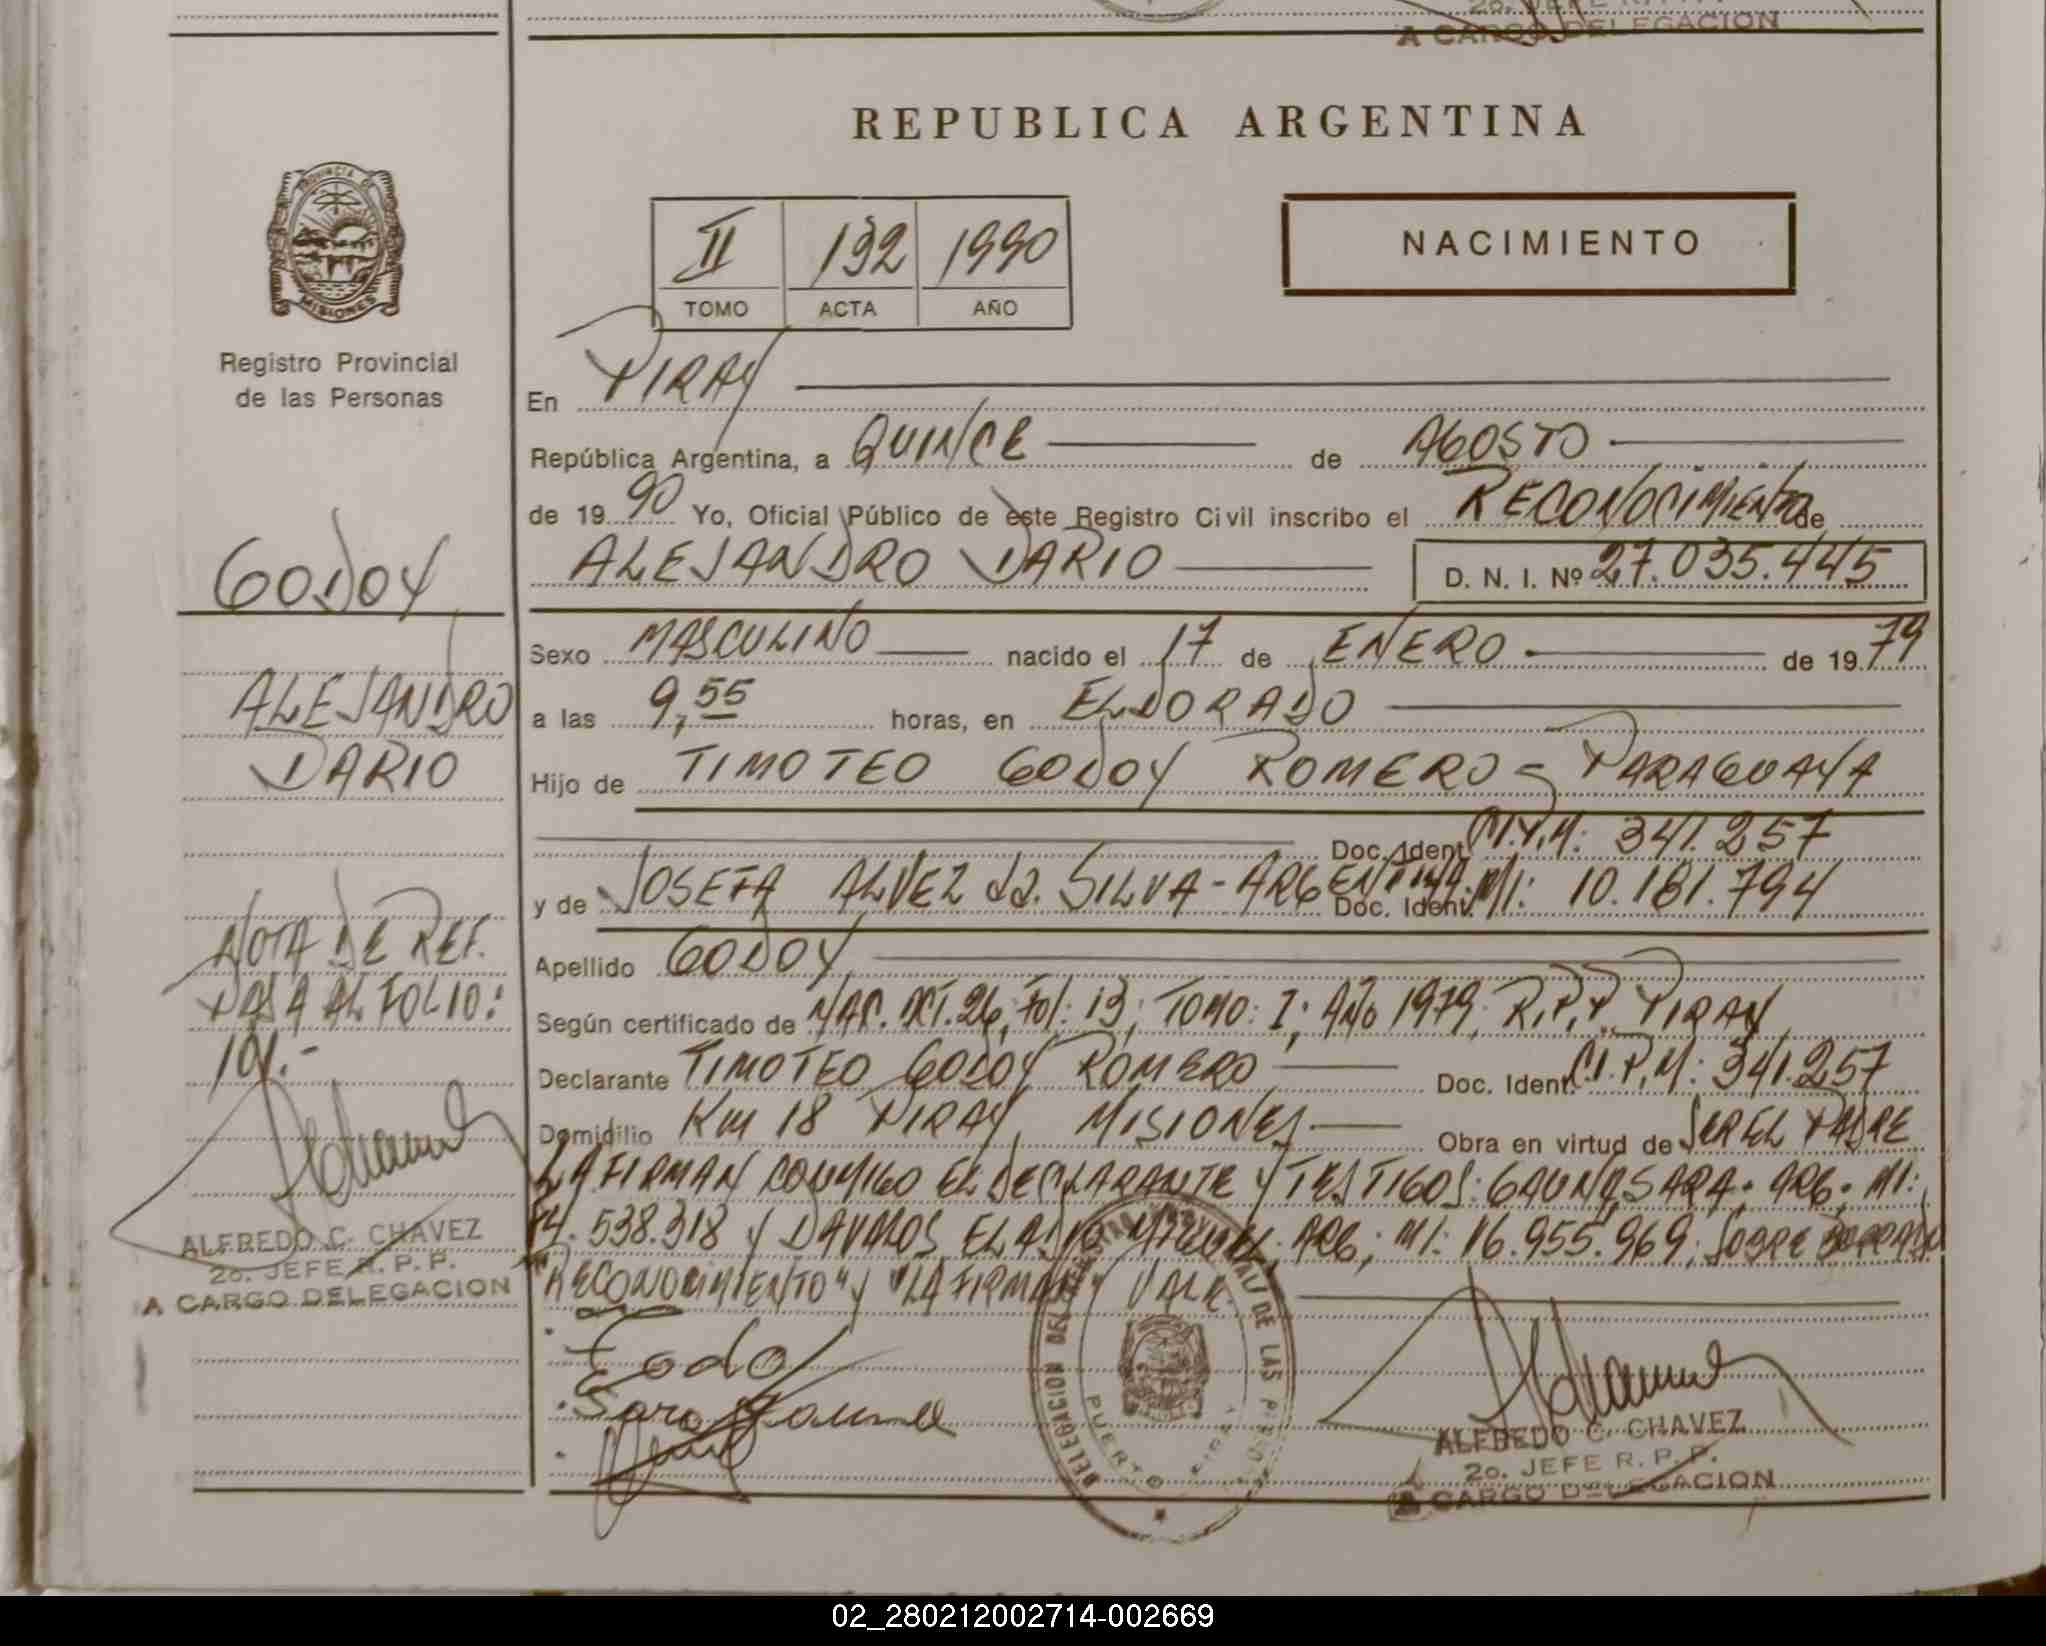 A CARGO DELEGACION
REPUBLICA ARGENTINA
PROVINCIA DE
MISIONES
Registro Provincial
de las Personas
II 192 1990
TOMO ACTA AÑO
NACIMIENTO
En PIRAY
República Argentina, a QUINCE de AGOSTO
de 1990 Yo, Oficial Público de este Registro Civil inscribo el RECONOCIMIENTO de
ALEJANDRO DARIO D. N. I. Nº 27.035.445
GODOY
ALEJANDRO
DARIO
Sexo MASCULINO nacido el 17 de ENERO de 1979
a las 9,55 horas, en ELDORADO
Hijo de TIMOTEO GODOY ROMERO - PARAGUAYA
Doc. Ident. C.I.P.M: 341.257
y de JOSEFA ALVEZ da. SILVA - ARGENTINA Doc. Ident. MI: 10.181.794
Apellido GODOY
Según certificado de NAC. ACT. 26; Fol: 13; TOMO: I; AÑO 1979; R.P.P. PIRAY
Declarante TIMOTEO GODOY ROMERO Doc. Ident. C.I.P.M: 341.257
Domicilio Km 18 PIRAY, MISIONES Obra en virtud de SER EL PADRE
LA FIRMAN CONMIGO EL DECLARANTE Y TESTIGOS: GAUNA, SARA - ARG. MI:
14.538.318 y DAVALOS, ARG; MI: 16.955.969; SOBRE BORRADO
"RECONOCIMIENTO" y "LA FIRMAN" VALE
NOTA DE REF.
PASA AL FOLIO:
101.-
ALFREDO C. CHAVEZ
2o. JEFE R. P. P.
A CARGO DELEGACION
Godoy
Sara Gauna
DELEGACION DEL REGISTRO PROVINCIAL DE LAS PERSONAS
PUERTO PIRAY
ALFREDO C. CHAVEZ
2o. JEFE R. P. P.
A CARGO DELEGACION
02_280212002714-002669